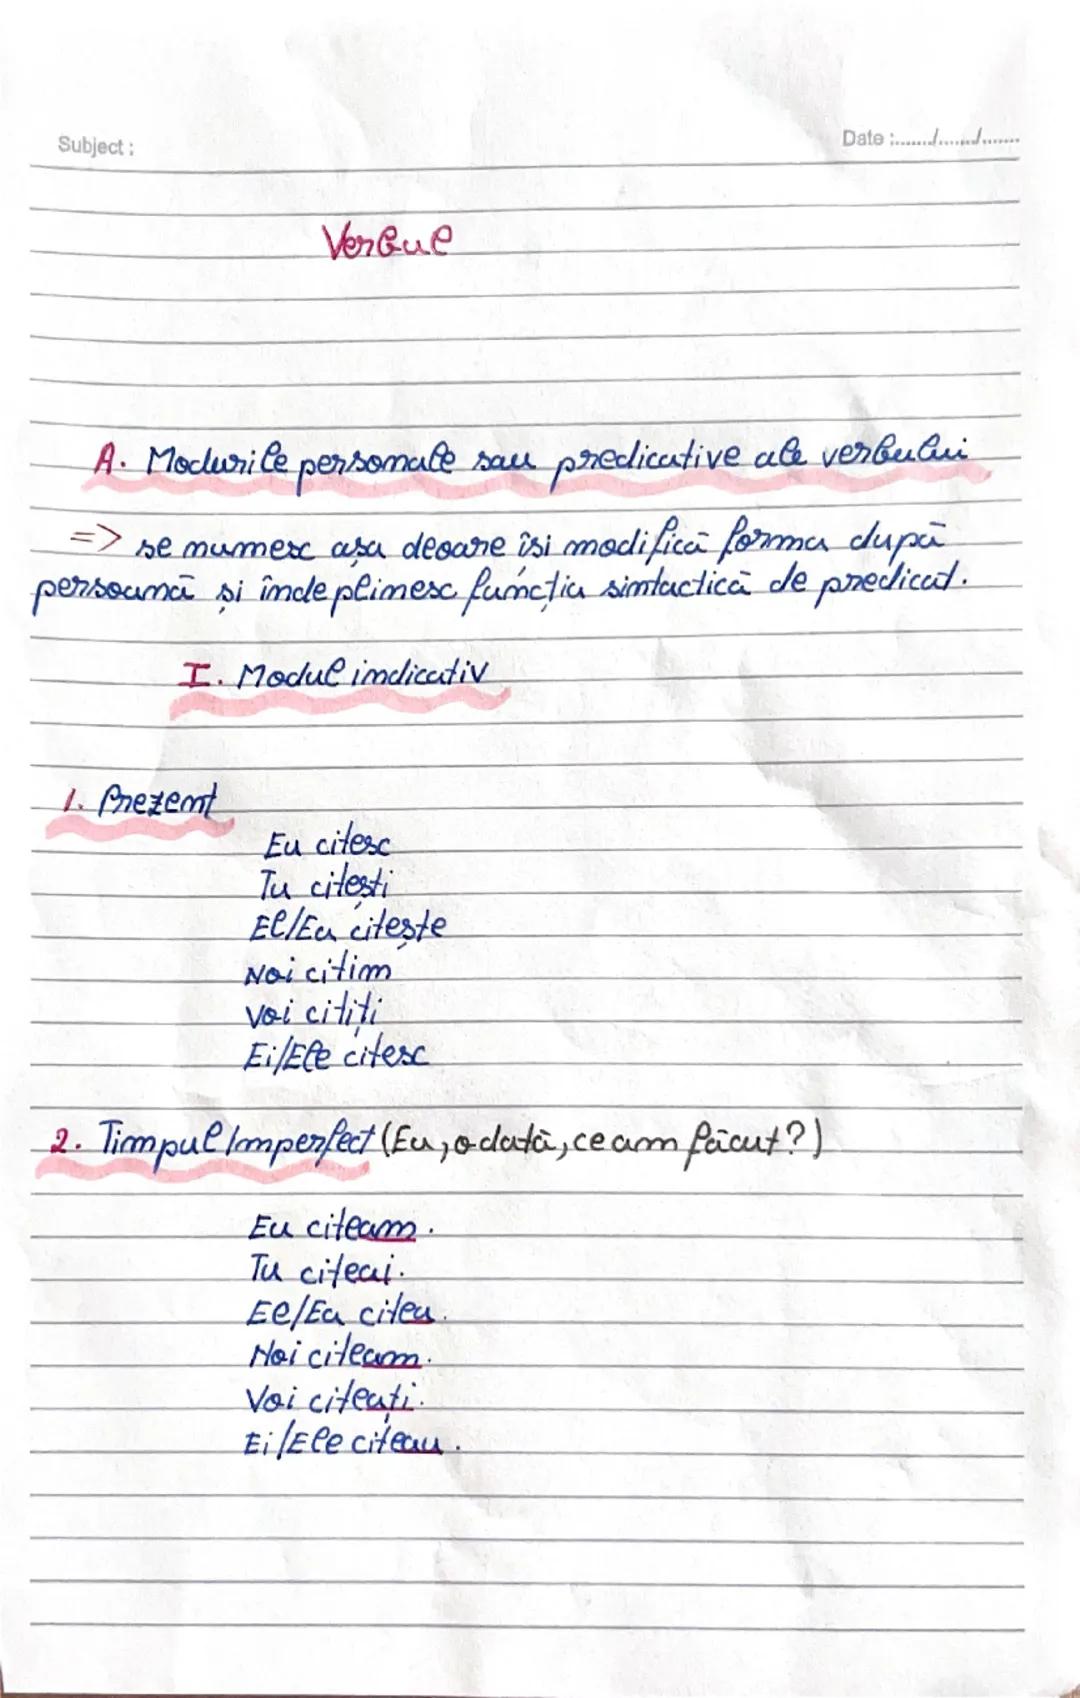 Subject :
Date :......../......../........
Verbul
A. Modurile personale sau predicative ale verbului
=> se numesc așa deoare își modifică forma după
persoană și îndeplinesc funcția sintactică de predicat.
I. Modul indicativ
1. Prezent
Eu citesc
Tu citești
El/Ea citește
Noi citim
Voi citiți
Ei/Ele citesc
2. Timpul Imperfect (Eu, odată, ce am făcut?)
Eu citeam.
Tu citeai.
El/Ea citea.
Noi citeam.
Voi citeați.
Ei/Ele citeau.